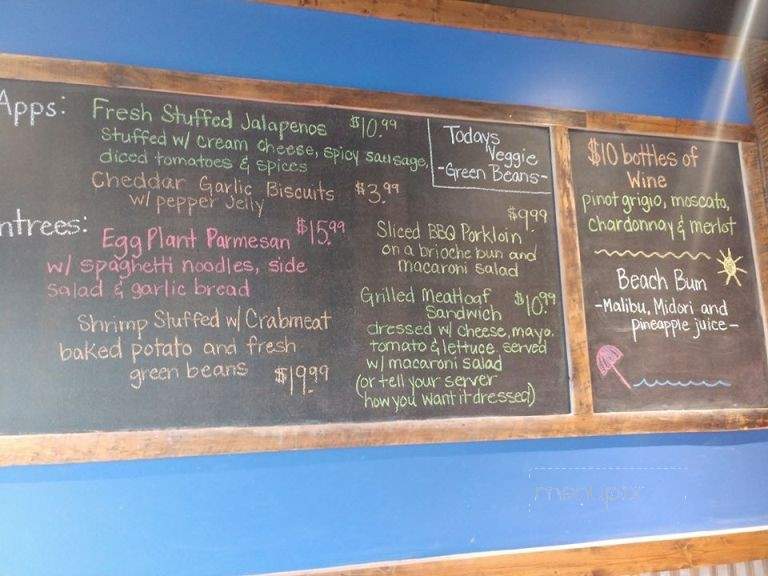 Apps: Fresh Stuffed Jalapenos $10.99
Stuffed w/ cream cheese, spicy sausage,
diced tomatoes & spices
Cheddar Garlic Biscuits $3.99
w/ pepper Jelly
ntrees:
Egg Plant Parmesan $15.99
w/ spaghetti noodles, side
salad & garlic bread
Shrimp Stuffed w/ Crabmeat
baked potato and fresh
green beans $19.99
Todays
Veggie
-Green Beans-
$9.99
Sliced BBQ Porkloin
on a brioche bun and
macaroni salad
Grilled Meatloaf $10.99
Sandwich
dressed w/ cheese, mayo.
tomato & lettuce. served
w/ macaroni salad
(or tell your server
how you want it dressed)
$10 bottles of
Wine
pinot grigio, moscato,
chardonnay & merlot
Beach Bum
-Malibu, Midori and
pineapple juice-
menupix